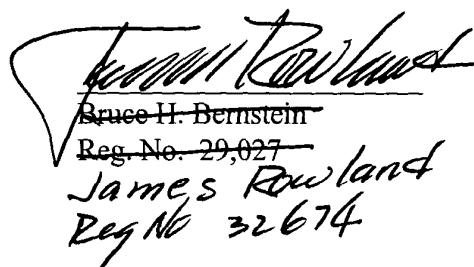 James Rowland
Bruce H. Bernstein
Reg. No. 29,027
James Rowland
Reg No 32674